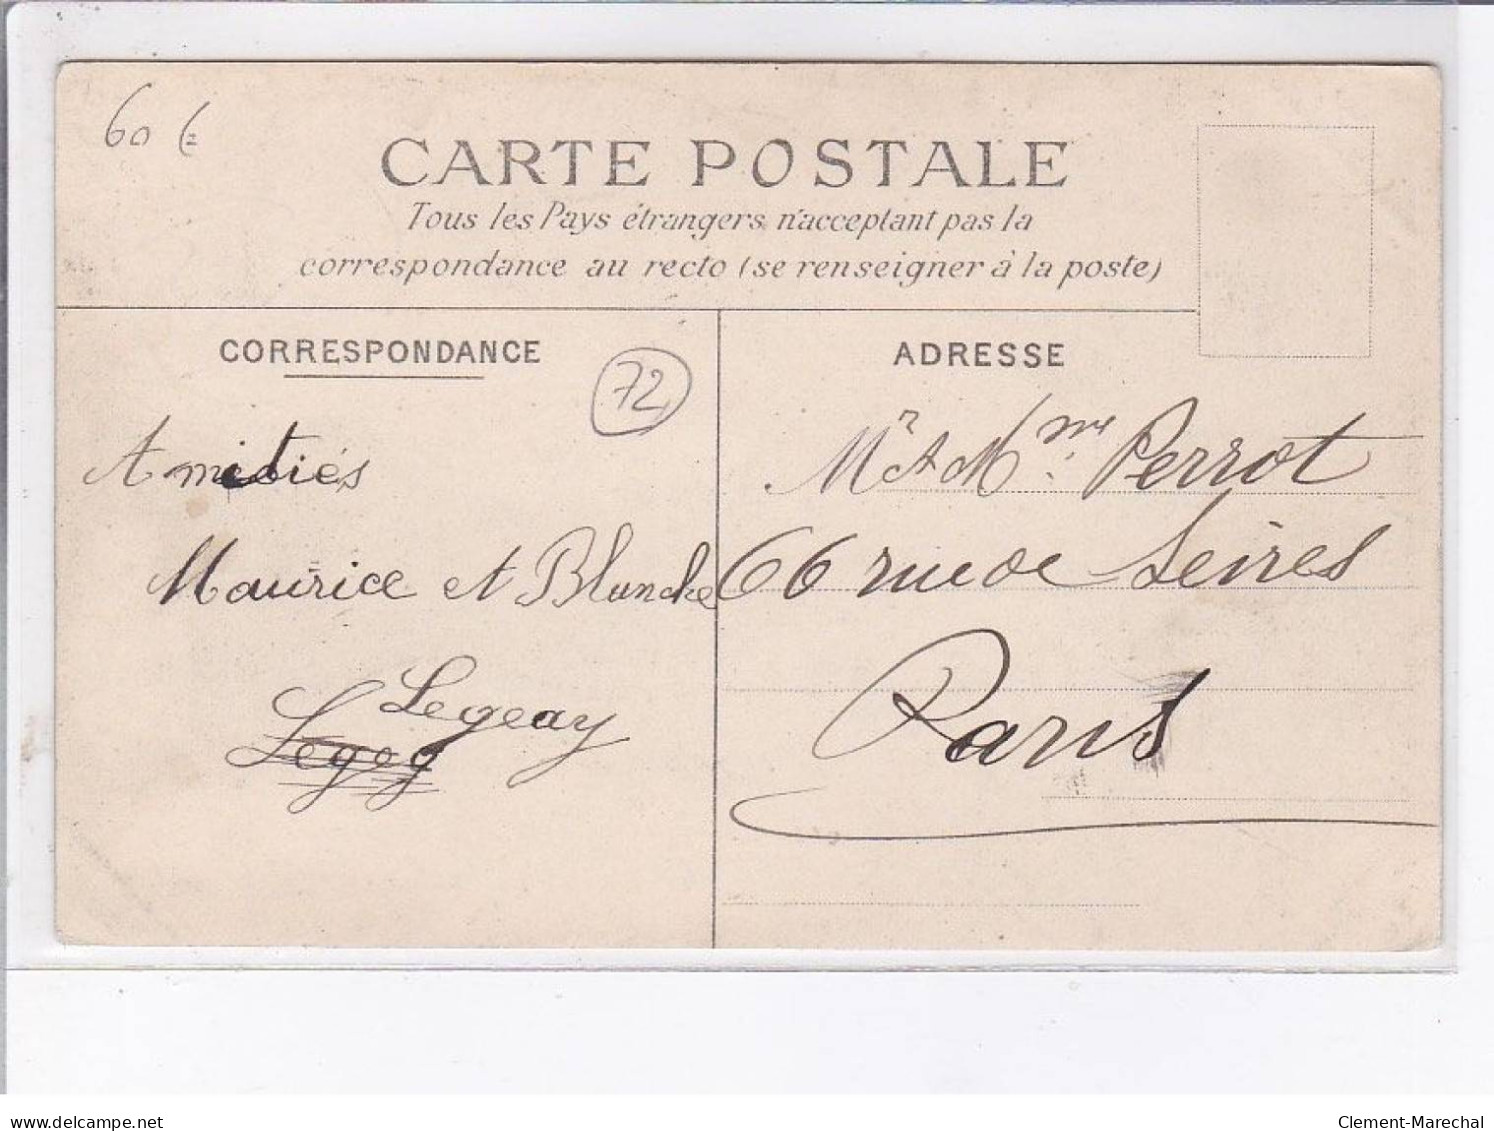 60 €
CARTE POSTALE
Tous les Pays étrangers n'acceptant pas la
correspondance au recto (se renseigner à la poste)
CORRESPONDANCE
72
ADRESSE
Amitiés
Maurice et Blanche
Legeay
Mr & Mme Perrot
66 rue de Seires
Paris
delcampe.net
Clement-Marechal